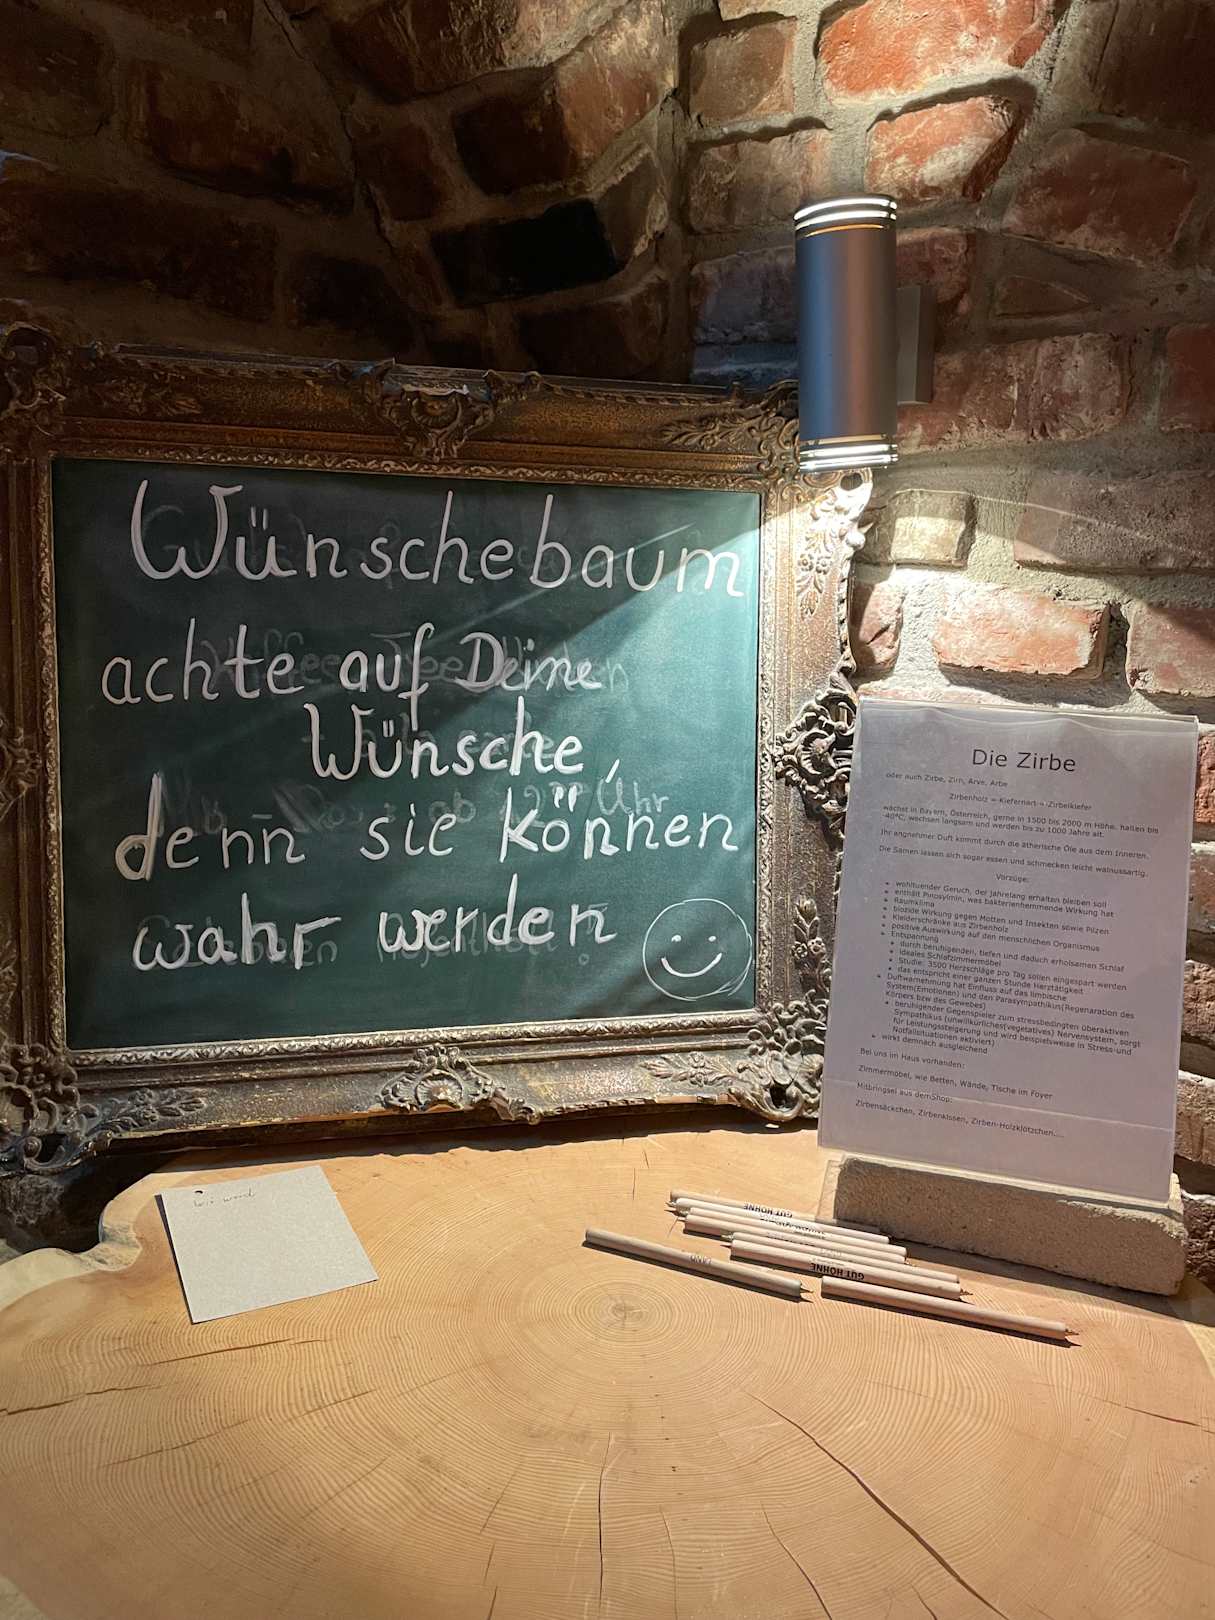 Wünschebaum
achte auf Deine
Wünsche,
denn sie können
wahr werden
Die Zirbe
oder auch Zirbe, Zirn, Arve, Arbe
Zirbenholz = Kiefernart = Zirbelkiefer
wächst in Bayern, Österreich, gerne in 1500 bis 2000 m Höhe. halten bis
-40°C, wachsen langsam und werden bis zu 1000 Jahre alt.
Ihr angnehmer Duft kommt durch die ätherische Öle aus dem Inneren.
Die Samen lassen sich sogar essen und schmecken leicht walnussartig.
Vorzüge:
wohltuender Geruch, der jahrelang erhalten bleiben soll
enthält Pinosylmin, was bakterienhemmende Wirkung hat
Raumklima
biozide Wirkung gegen Motten und Insekten sowie Pilzen
Kleiderschränke aus Zirbenholz
positive Auswirkung auf den menschlichen Organismus
Entspannung
durch beruhigenden, tiefen und daduch erholsamen Schlaf
ideales Schlafzimmermöbel
Studie: 3500 Herzschläge pro Tag sollen eingespart werden
das entspricht einer ganzen Stunde Herztätigkeit
Duftwarnehmung hat Einfluss auf das limbische
System(Emotionen) und den Parasympathikus(Regenaration des
Körpers bzw des Gewebes)
beruhigender Gegenspieler zum stressbedingten überaktiven
Sympathikus (unwillkürliches(vegetatives) Nervensystem, sorgt
für Leistungssteigerung und wird beispielsweise in Stress-und
Notfallsituationen aktiviert)
wirkt demnach ausgleichend
Bei uns im Haus vorhanden:
Zimmermöbel, wie Betten, Wände, Tische im Foyer
Mitbringsel aus demShop:
Zirbensäckchen, Zirbenkissen, Zirben-Holzklötzchen....
GUT HÖHNE
GUT HÖHNE
LAND